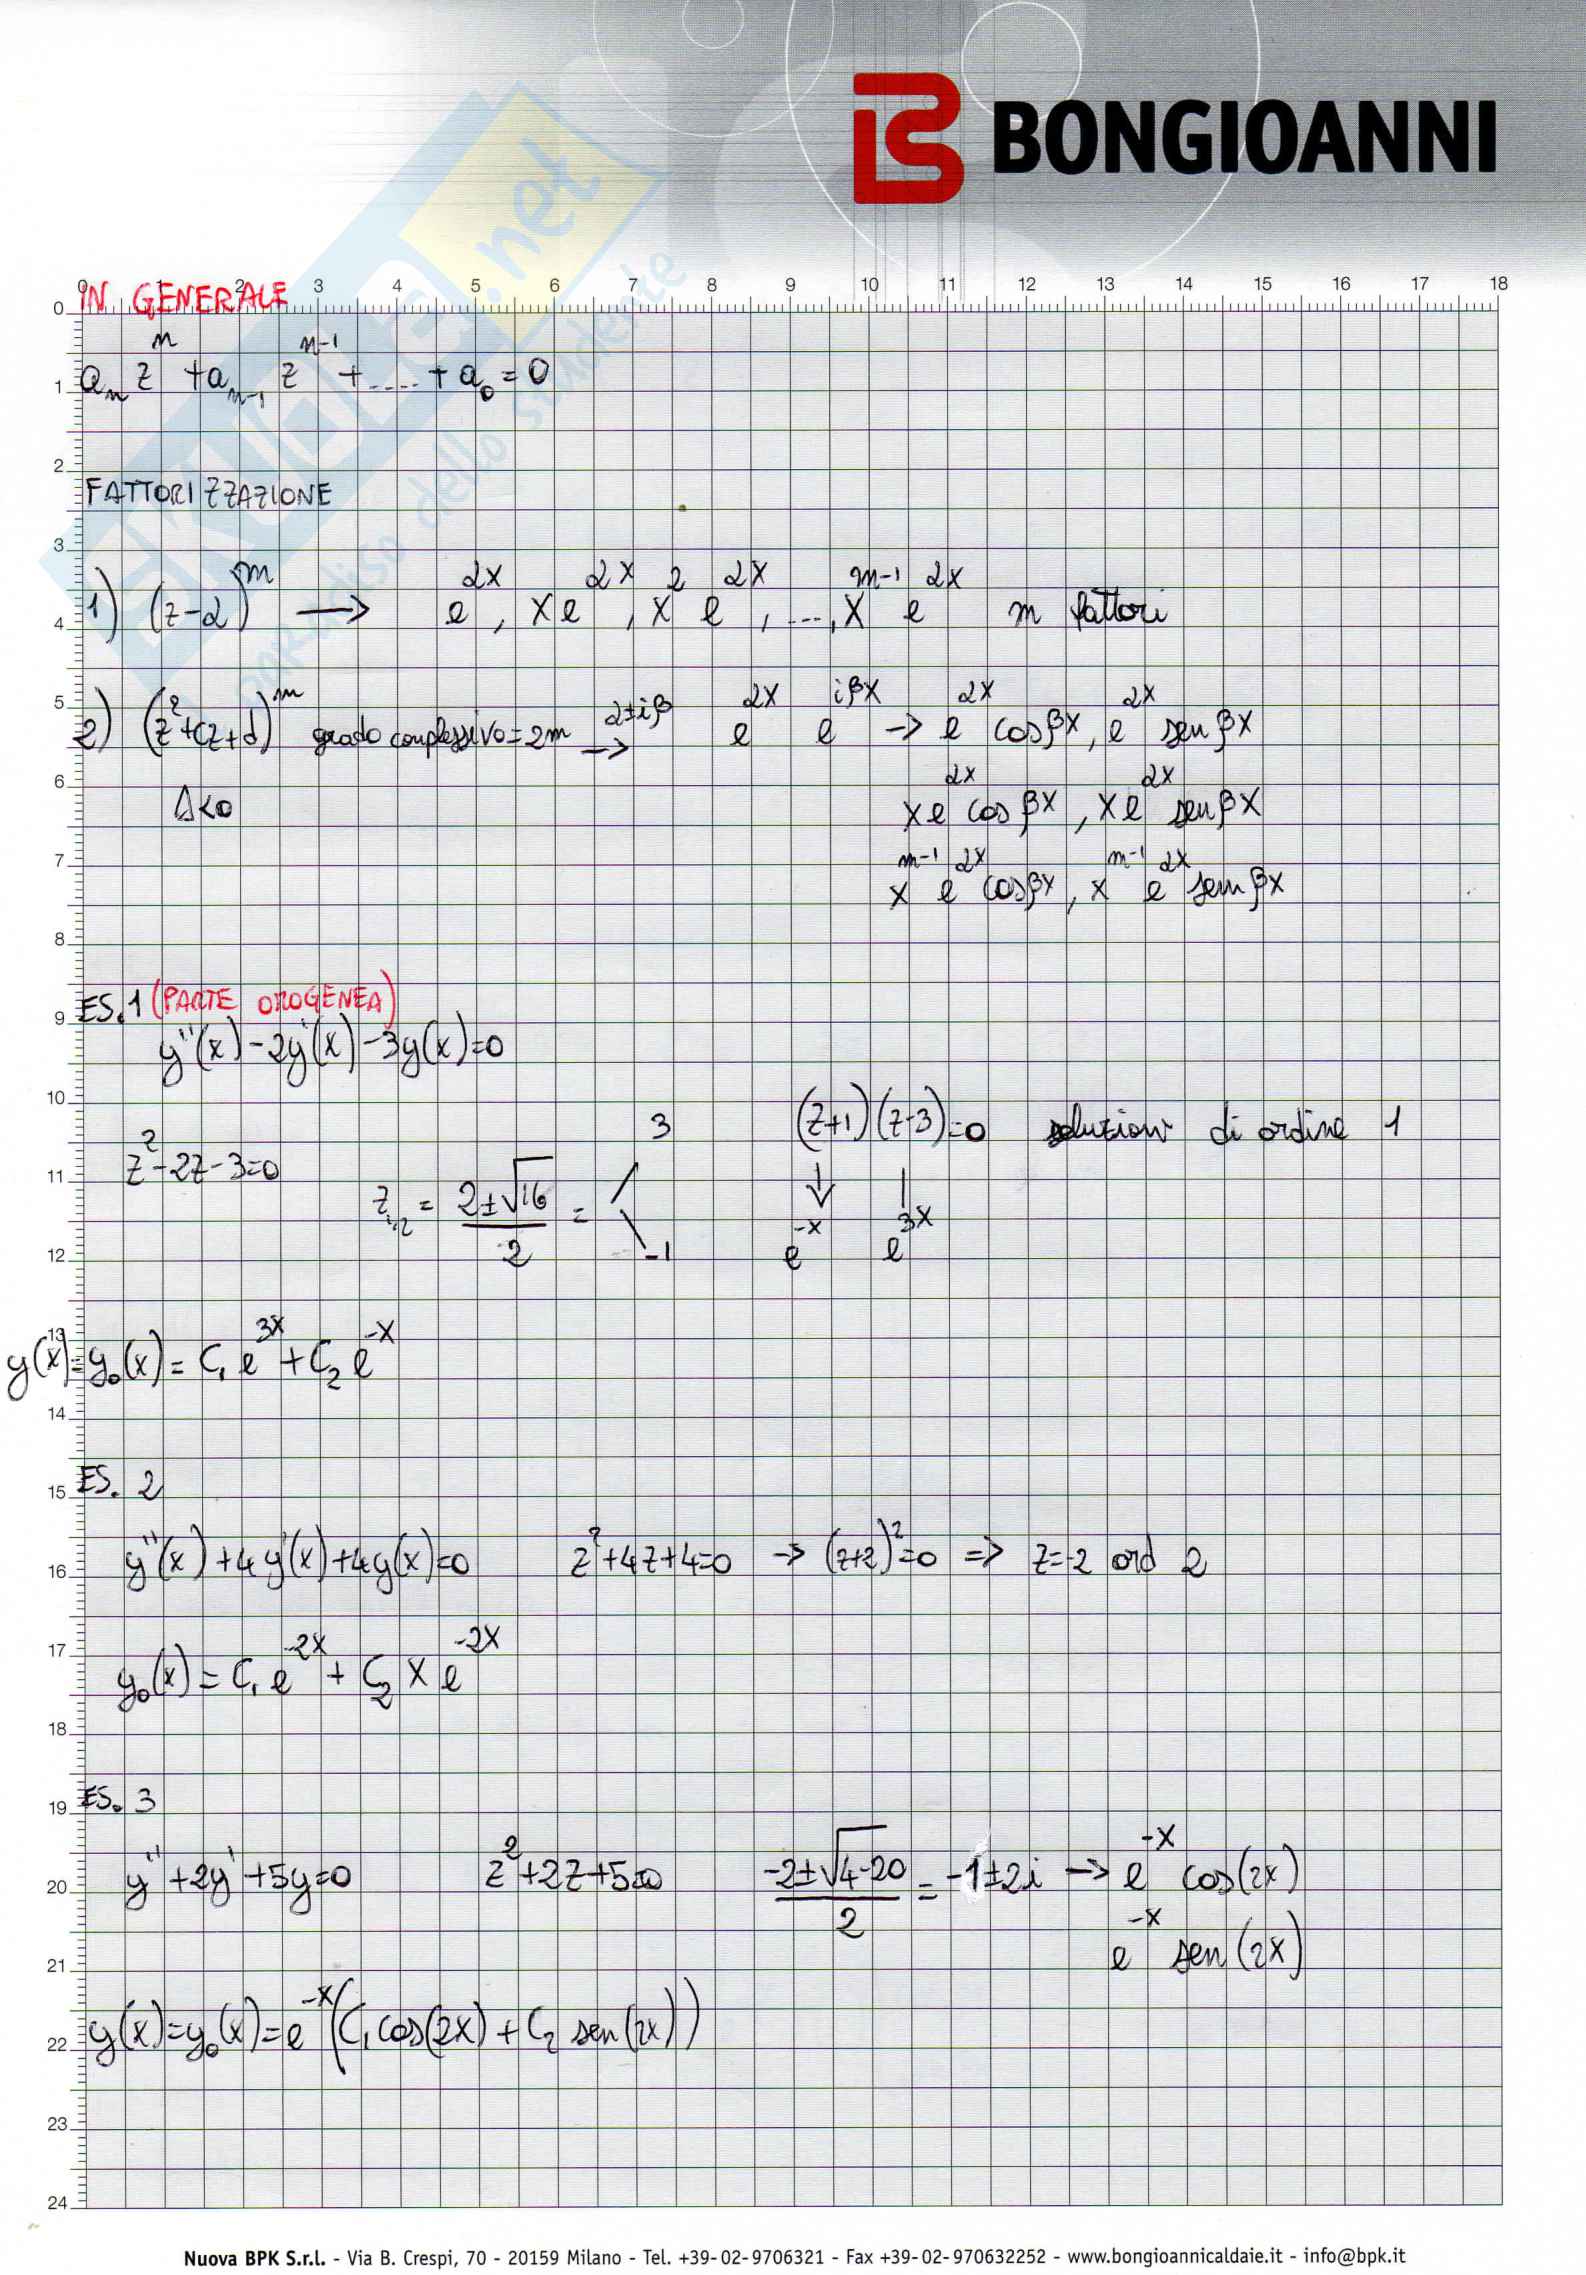 BONGIOANNI
SKUOLA.net
paradiso dello studente
0 1 2 3 4 5 6 7 8 9 10 11 12 13 14 15 16 17 18
IN GENERALE
aₙ zⁿ + aₙ₋₁ zⁿ⁻¹ + ..... + a₀ = 0
FATTORIZZAZIONE
1) (z-α)^m → e^(αx), xe^(αx), x² e^(αx), ..., x^(m-1) e^(αx) m fattori
2) (z²+cz+d)^m grado complessivo=2m → α±iβ e^(αx) e^(iβx) → e^(αx) cosβx, e^(αx) senβx
Δ<0 xe^(αx) cosβx, xe^(αx) senβx
x^(m-1) e^(αx) cosβx, x^(m-1) e^(αx) senβx
ES.1 (PARTE OMOGENEA)
y''(x)-2y'(x)-3y(x)=0
z²-2z-3=0 z₁,₂ = (2±√16)/2 = 3 / -1 (z+1)(z-3)=0 soluzioni di ordine 1
↓ e^(-x) | e^(3x)
y(x)=y₀(x)= C₁ e^(3x) + C₂ e^(-x)
ES. 2
y''(x)+4y'(x)+4y(x)=0 z²+4z+4=0 → (z+2)²=0 => z=-2 ord 2
y₀(x)= C₁ e^(-2x) + C₂ x e^(-2x)
ES. 3
y''+2y'+5y=0 z²+2z+5=0 (-2±√4-20)/2 = -1±2i → e^(-x) cos(2x)
e^(-x) sen(2x)
y(x)=y₀(x)=e^(-x)(C₁cos(2x)+C₂ sen(2x))
0 1 2 3 4 5 6 7 8 9 10 11 12 13 14 15 16 17 18 19 20 21 22 23 24
Nuova BPK S.r.l. - Via B. Crespi, 70 - 20159 Milano - Tel. +39-02-9706321 - Fax +39-02-970632252 - www.bongioannicaldaie.it - info@bpk.it